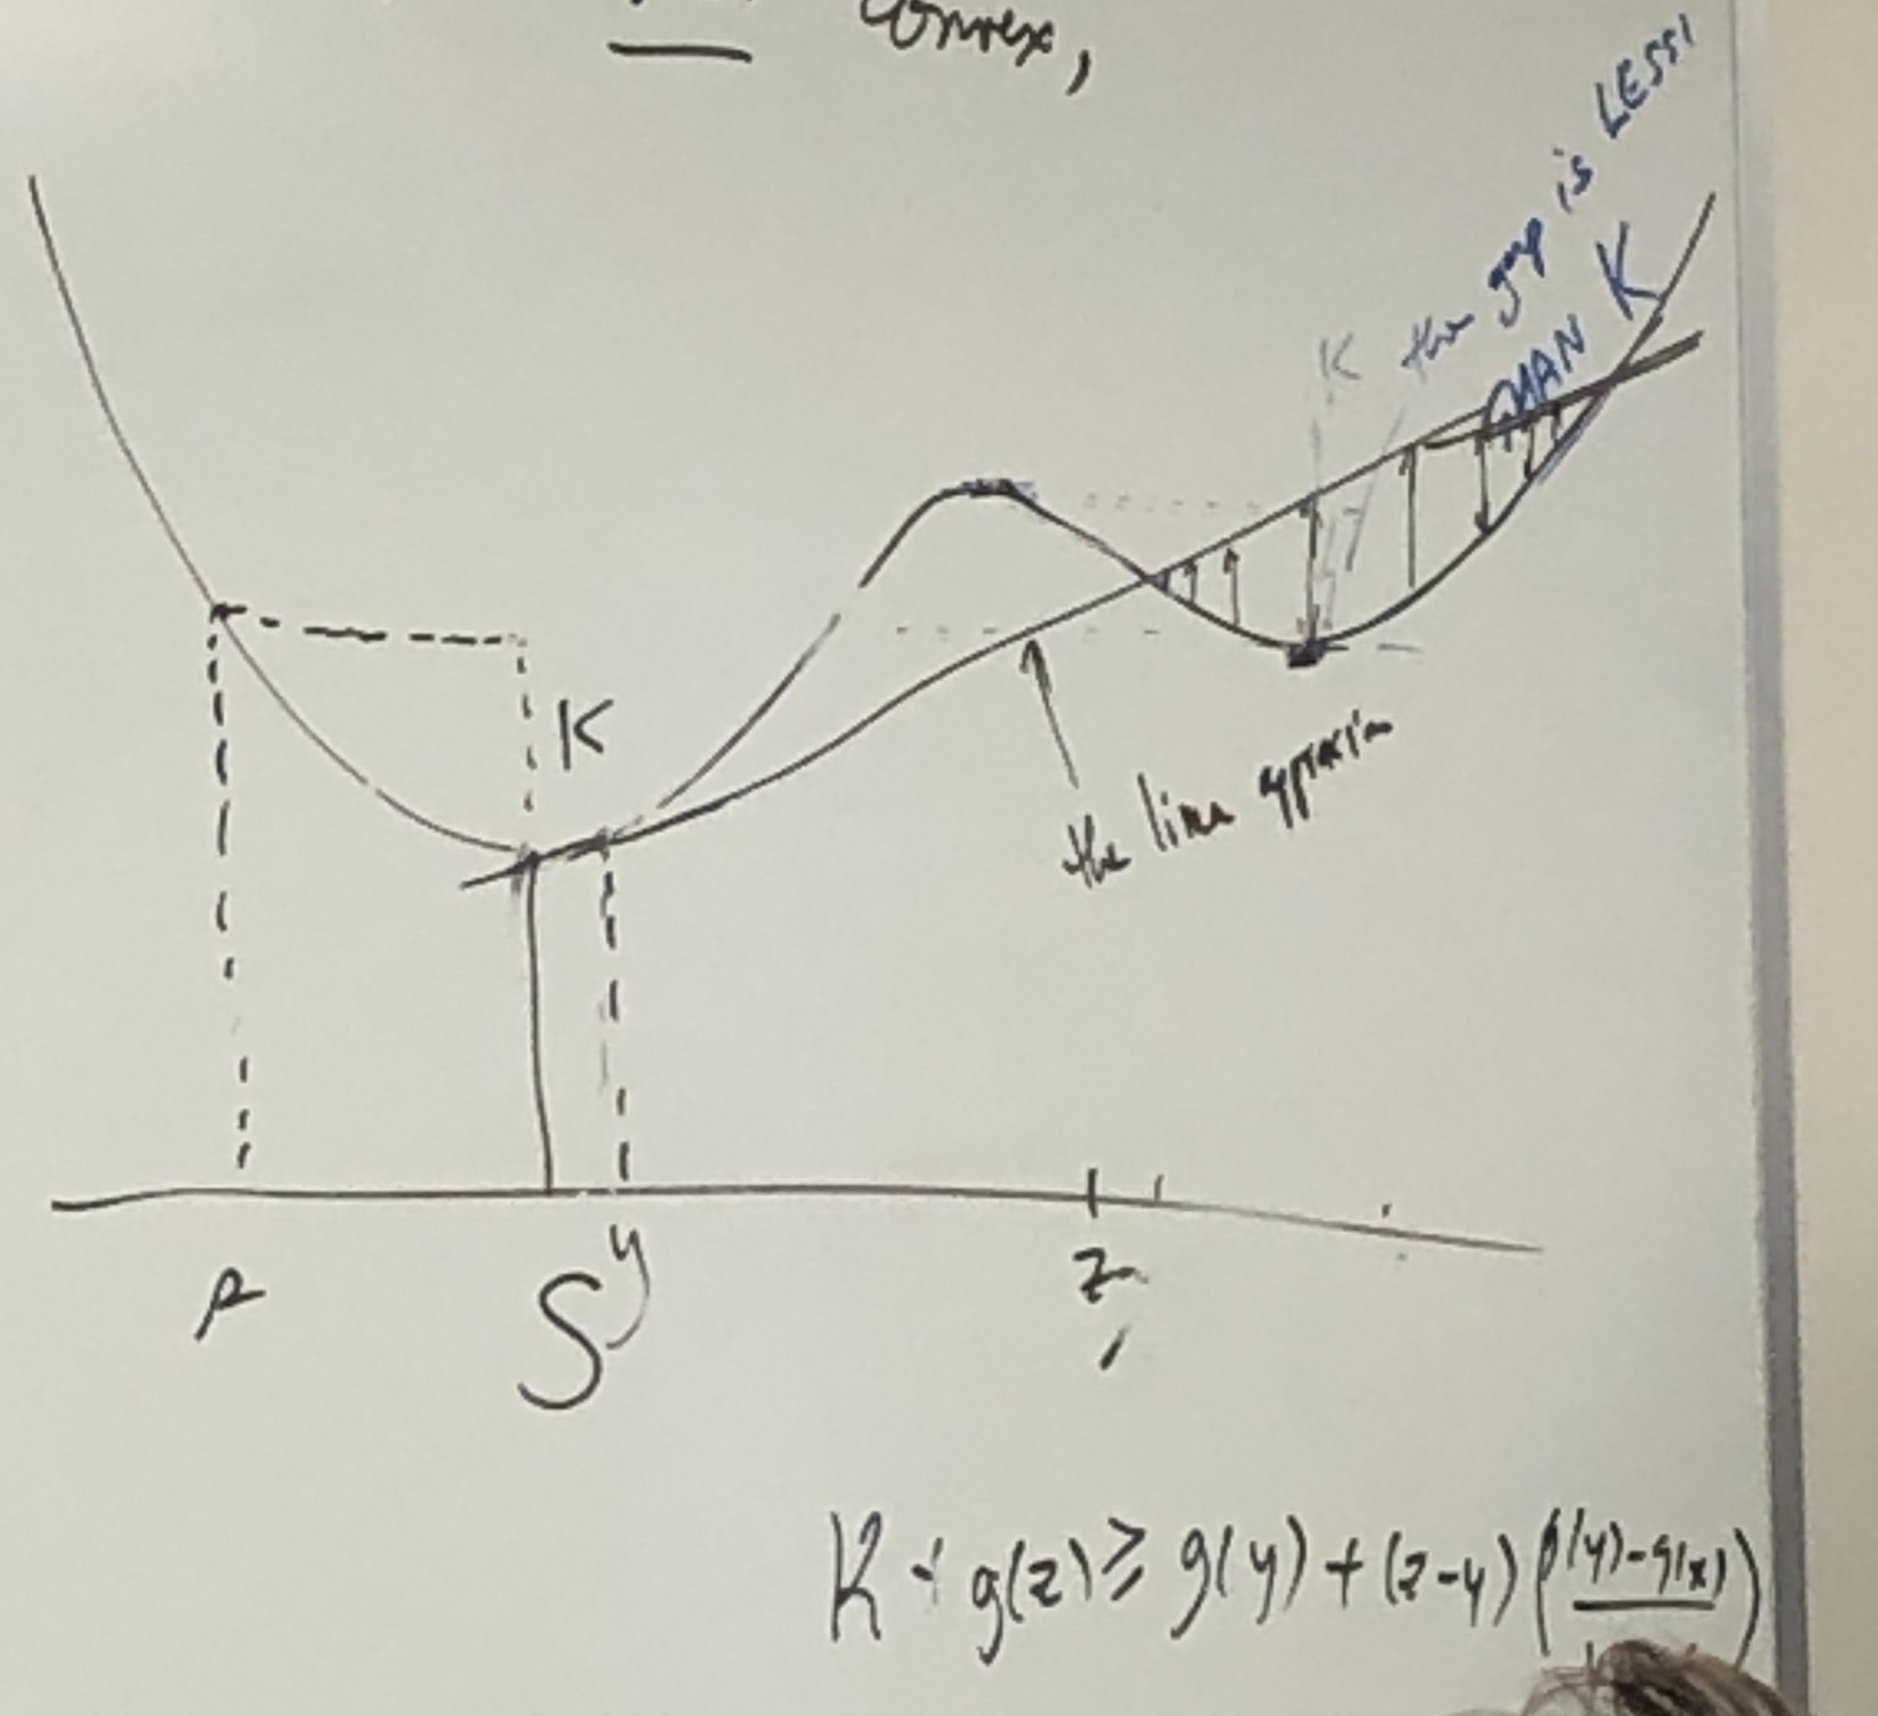 Convex,
the gap is LESS!
THAN K
K
K
the line approxim
s
S y z
K + g(z) ≥ g(y) + (z-y) (g(y)-g(x)